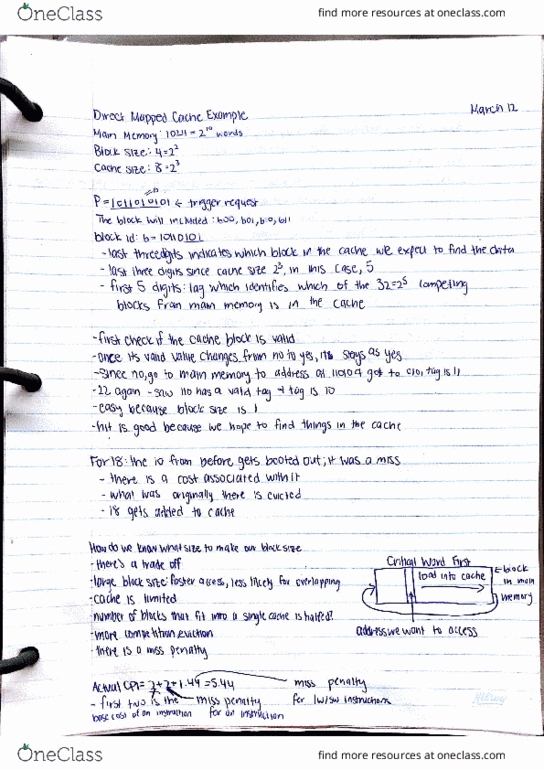 OneClass
find more resources at oneclass.com
March 12
Direct Mapped Cache Example
Main Memory: 1024 = 2^10 words
Block size: 4 = 2^2
Cache size: 8 = 2^3
P = 1011010101 ← trigger request
The block will included: b00, b01, b10, b11
block id: b = 10110101
- last three digits indicates which block in the cache we expect to find the data
- last three digits since cache size 2^3, in this case, 5
- first 5 digits: tag which identifies which of the 32 = 2^5 competing
blocks from main memory is in the cache
- first check if the cache block is valid
- once its valid value changes from no to yes, it stays as yes
- since no, go to main memory to address at 11010 & got to 010, tag is 11
- 22 again - saw 110 has a valid tag & tag is 10
- easy because block size is 1
- hit is good because we hope to find things in the cache
For 18: the 10 from before gets booted out; it was a miss
- there is a cost associated with it
- what was originally there is evicted
- 18 gets added to cache
How do we know what size to make our block size
- there's a trade off
- large block size: faster access, less likely for overlapping
- cache is limited
- number of blocks that fit into a single cache is halfed!
- more competition eviction
- there is a miss penalty
Critical Word First
load into cache
← block in main memory
address we want to access
Actual CPI = 2 + 2 + 1.44 = 5.44
miss penalty for lw/sw instructions
- first two is the base cost of an instruction
miss penalty for an instruction
OneClass
find more resources at oneclass.com